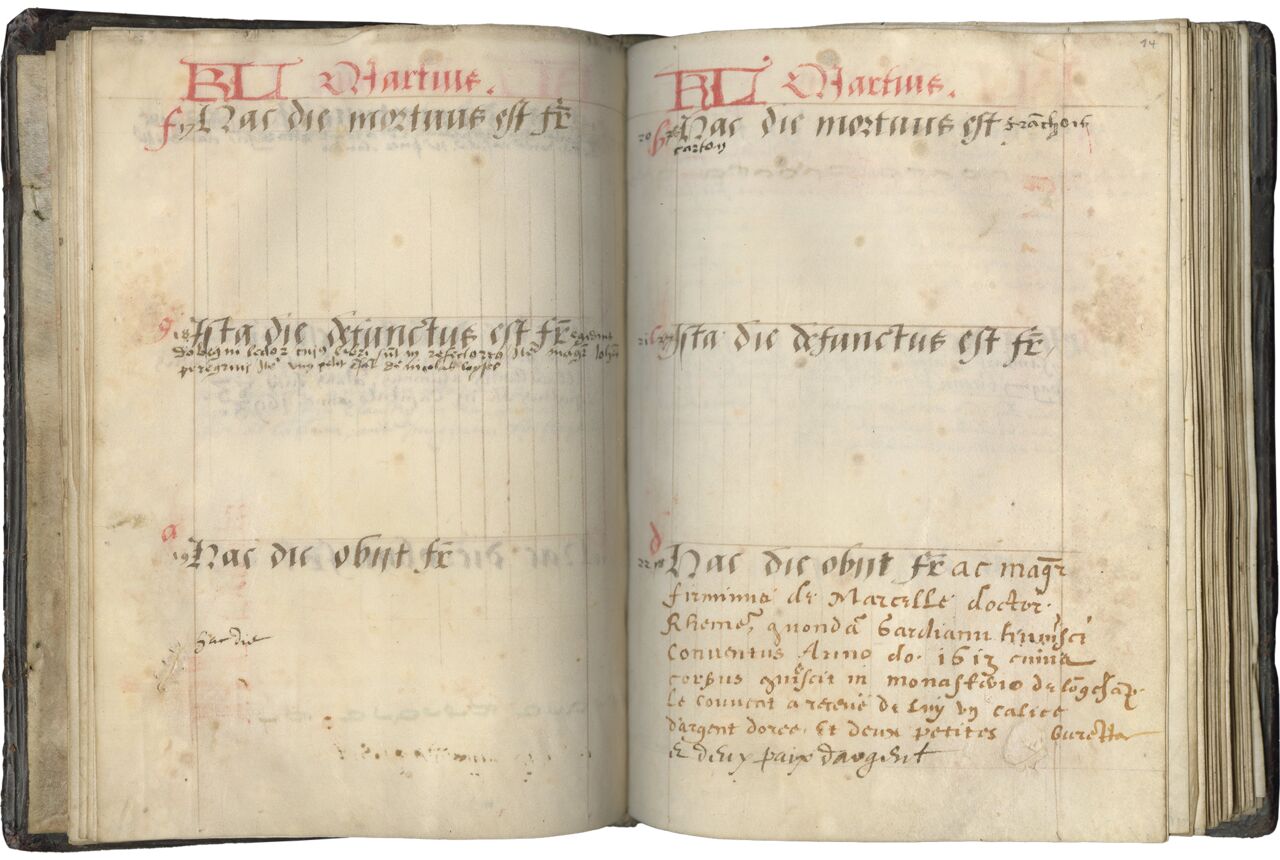 KL Martius.
f 17 Hac die mortuus est fr̄
g 18 Ista die defunctus est fr̄ egidius
peregrini Itē
a 19 Hac die obijt fr̄
hac die
14
KL Martius.
20 b Hac die mortuus est frāchois
carton
21 c Ista die defunctus est fr̄
d
22 Hac die obijt fr̄ ac magr̄
firminus de Marcelle doctor
Rhemēs quondā Gardianu huiusci
Conuentus Anno do. 1613 cuius
corpus quiescit in monasterio de lōgchāp.
Le couuent a retenu de luy vn calice
d'argent doree Et deux petites burettes
et deux paix dargent